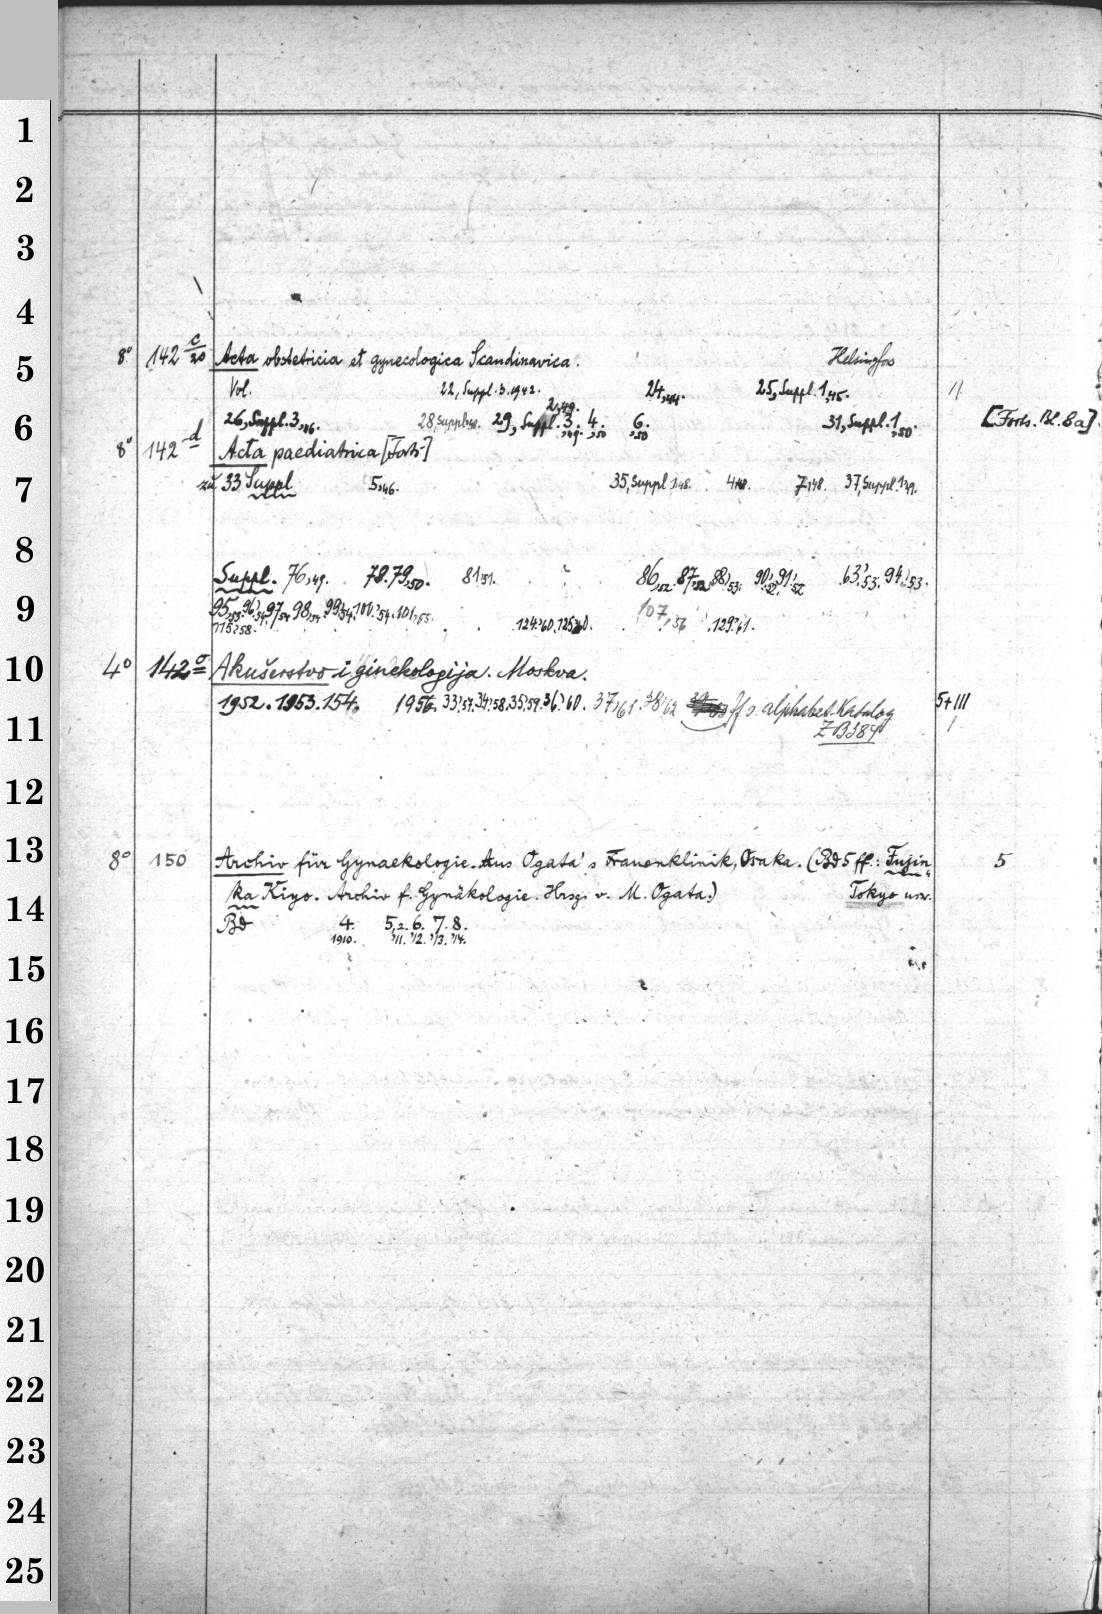 1
2
3
4
5
6
7
8
9
10
11
12
13
14
15
16
17
18
19
20
21
22
23
24
25
8° 142 c/20 Acta obstetricia et gynecologica Scandinavica. Helsingfors
Vol. 22, Suppl. 3. 1942. 24,44. 25, Suppl. 1,45. 11
2,49.
26, Suppl. 3,46. 28 Suppl. 29, Suppl. 3,49. 4,50 6,50 31, Suppl. 1,50. [Forts. Bl. 8a].
8° 142 d Acta paediatrica [Forts.]
zu 33 Suppl 5,46. 35, Suppl 1,48. 4,48. 7,48. 37, Suppl. 1,49.
Suppl. 76,49. 78.79,50. 81,51. 86,52 87,52 88,53. 90,52 91,52 63,53. 94,53.
95,53. 96,54. 97,54 98,54 99,54. 100,54. 101,55. 107,56
115,58. 124,60. 125,60. 129,61.
4° 142 Akušerstvo i ginekologija. Moskva.
1952. 1953. 154. 1956. 33,57. 34,58. 35,59. 36,60. 37,61 38,62 ff s. alphabet. Katalog 5+III
8° 150 Archiv für Gynaekologie. Aus Ogata's Frauenklinik, Osaka. (Bd 5 ff.: Fujin= 5
ka Kiyo. Archiv f. Gynäkologie. Hrsg. v. M. Ogata.) Tokyo usw.
Bd 4. 5,2. 6. 7. 8.
1910. '11. '12. '13. '14.